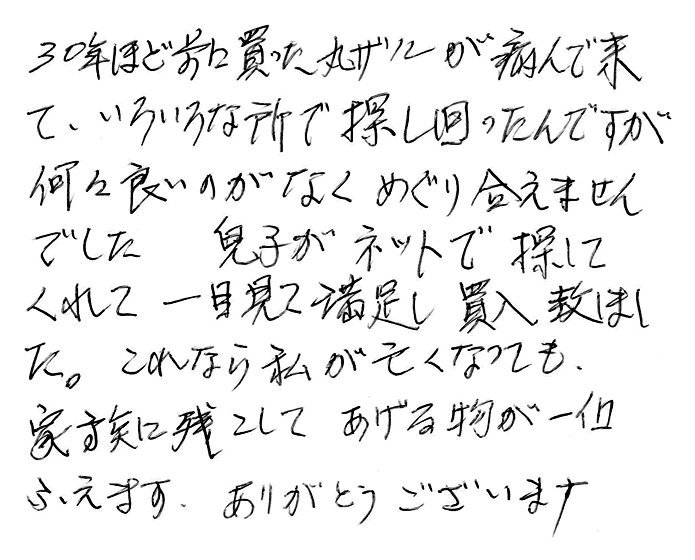 30年ほど前に買った丸ザルが病んで来
て、いろいろな所で探し回ったんですが
何々良いのがなくめぐり合えません
でした 息子がネットで探して
くれて 一目見て満足し買入致しまし
た。これなら私が亡くなっても、
家族に残こして あげる物が一個
ふえます、ありがとうございます